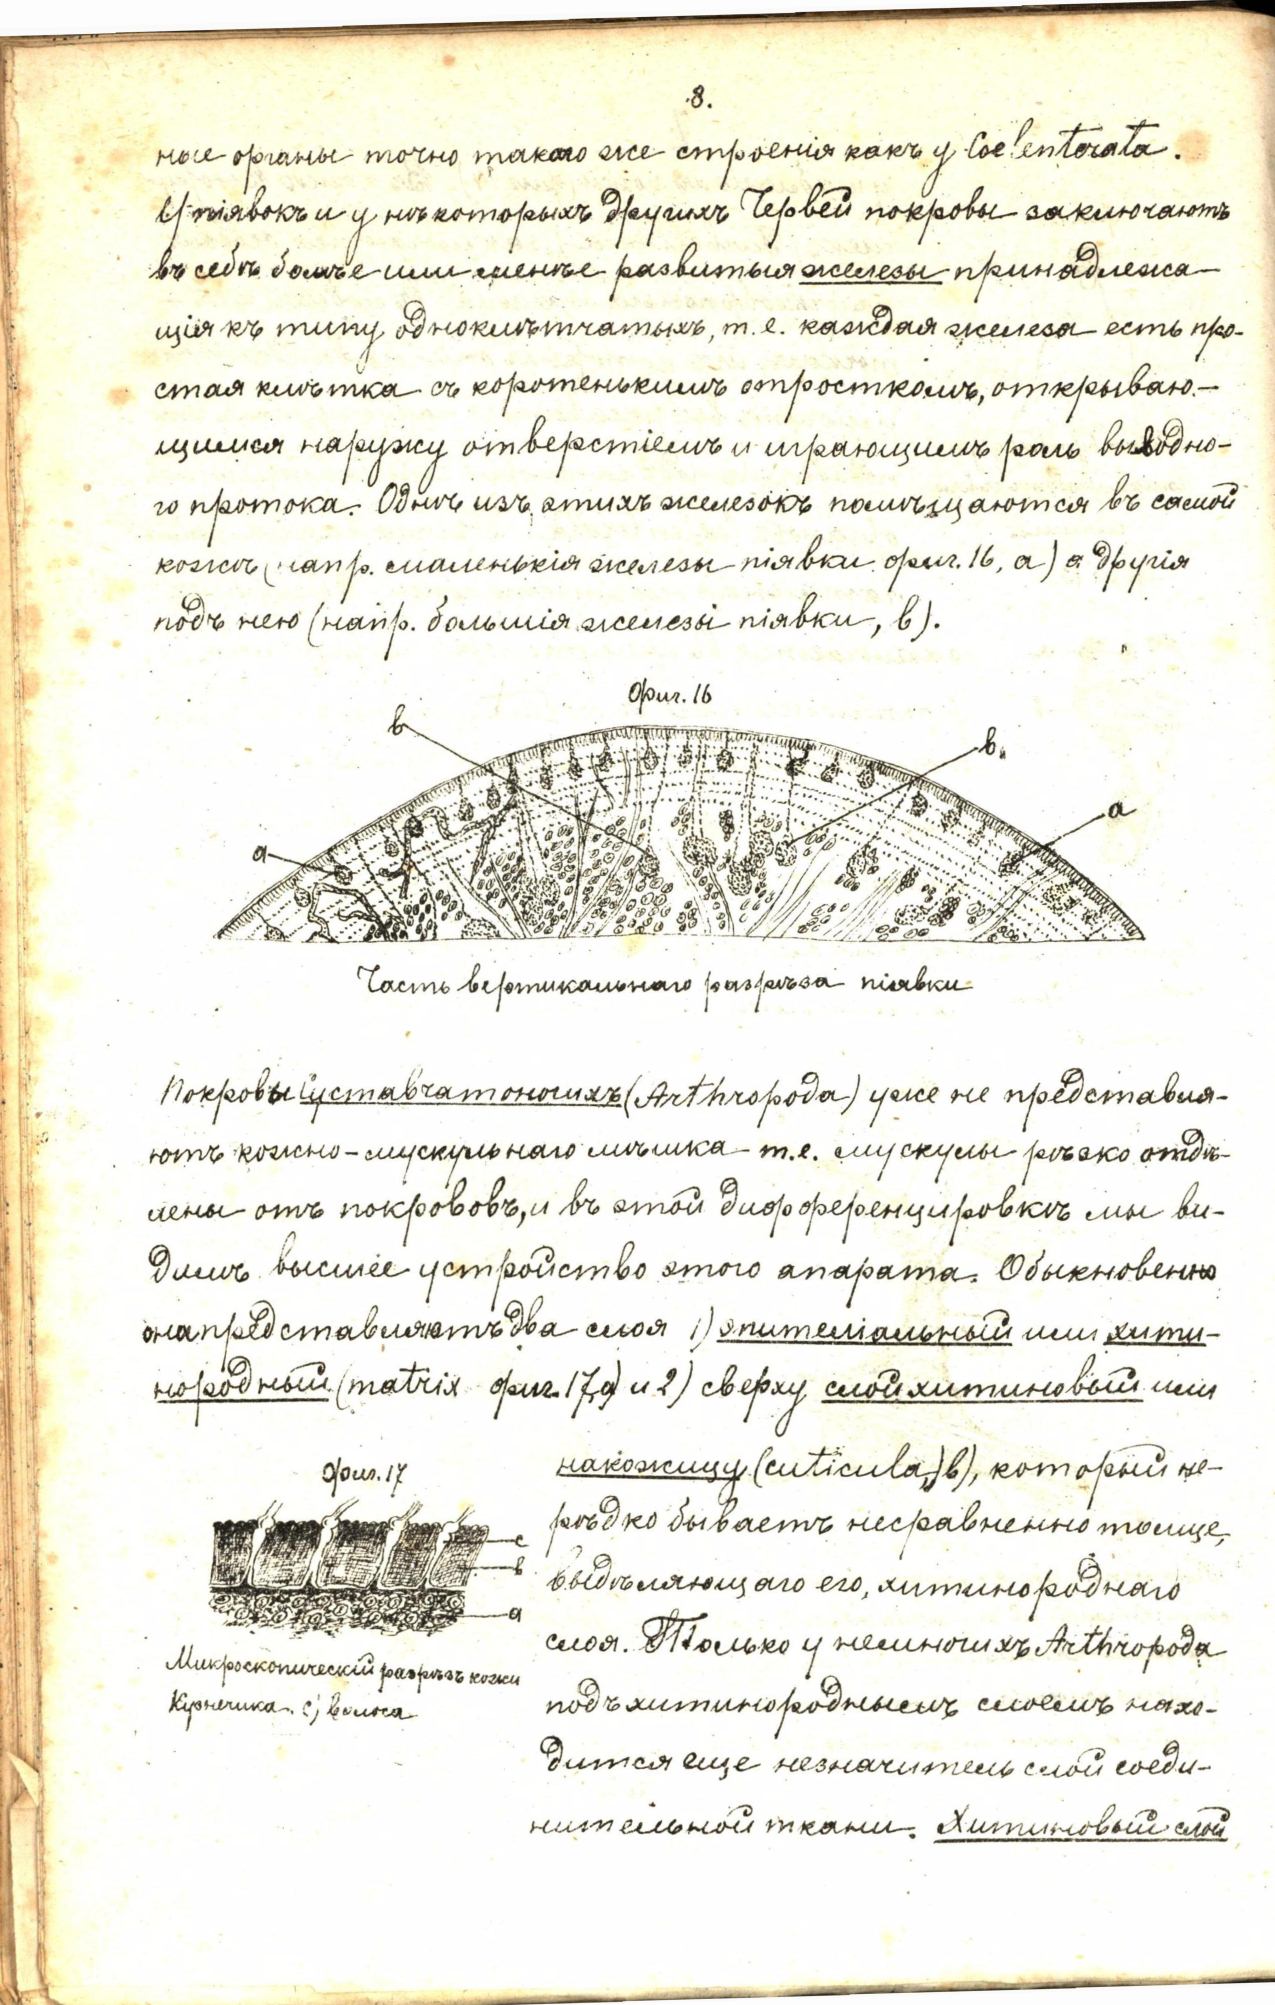 8.
ные органы точно такого же строенія какъ у Coelenterata.
У піявокъ и у нѣкоторыхъ другихъ Червей покровы заключаютъ
въ себѣ болѣе или менѣе развитыя железы принадлежа-
щія къ типу одноклѣтчатыхъ, т.е. каждая железа есть про-
стая клѣтка съ коротенькимъ отросткомъ, открываю-
щимся наружу отверстіемъ и играющимъ роль выводно-
го протока. Однѣ изъ этихъ железокъ помѣщаются въ самой
кожѣ (напр. маленькія железы піявки фиг. 16, а) а другія
подъ нею (напр. большія железы піявки, в).
Фиг. 16
в
в.
а
а
Часть вертикальнаго разрѣза піявки
Покровы Суставчатоногихъ (Arthropoda) уже не представля-
ютъ кожно-мускульнаго мѣшка т.е. мускулы рѣзко отдѣ-
лены отъ покрововъ, и въ этой дифференцировкѣ мы ви-
димъ высшее устройство этого апарата. Обыкновенно
она представляютъ два слоя 1) эпителіальный или хити-
нородный (matrix фиг. 17, а) и 2) сверху слой хитиновый или
накожицу (cuticula, в), который не-
рѣдко бываетъ несравненно толще,
выдѣляющаго его, хитинороднаго
слоя. Только у немногихъ Arthropoda
подъ хитинороднымъ слоемъ нахо-
дится еще незначитель слой соеди-
нительной ткани. Хитиновый слой
Фиг. 17
с
в
а
Микроскопическій разрѣзъ кожи
Кузнечика. с) волоса